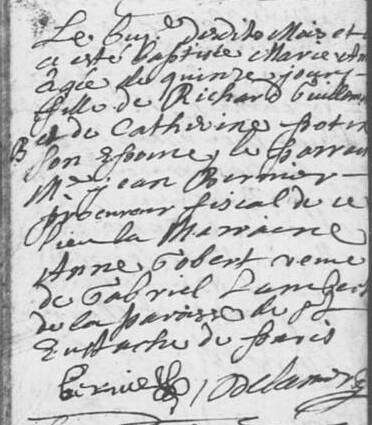 Le [..]e. desdits Mois et
a esté baptisée Marie An
âgée de quinze jours
fille de Richard Guillau
B et de Catherine potin
son Epouse, le parrain
Me. jean Bernier
procureur fiscal de ce
lieu la Marraine
Anne Gobert veuve
de Gabriel Lambert
de la paroisse de St
Eustache de paris
bernier Delamer